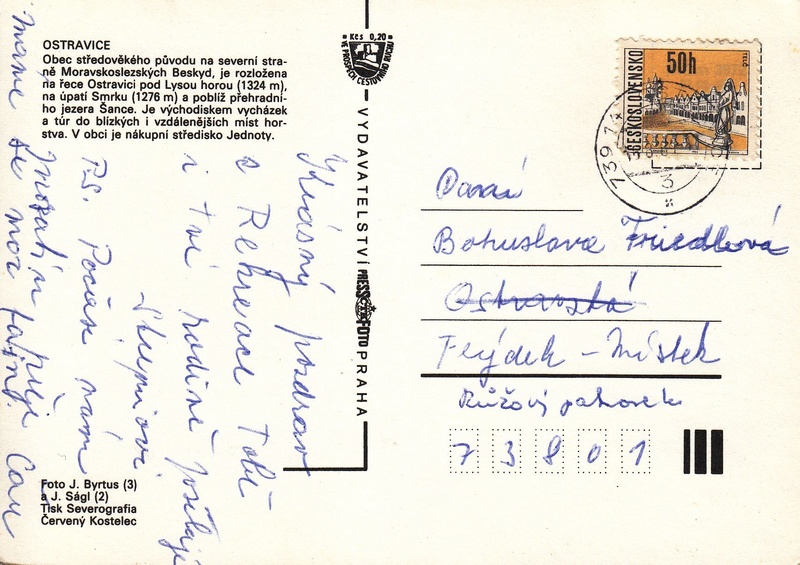 OSTRAVICE
Obec středověkého původu na severní stra-
ně Moravskoslezských Beskyd, je rozložena
na řece Ostravici pod Lysou horou (1324 m),
na úpatí Smrku (1276 m) a poblíž přehradní-
ho jezera Šance. Je východiskem vycházek
a túr do blízkých i vzdálenějších míst hor-
stva. V obci je nákupní středisko Jednoty.
Kčs 0,20
VE PROSPĚCH CESTOVNÍHO RUCHU
VYDAVATELSTVÍ PRESSFOTO PRAHA
ČESKOSLOVENSKO
50h
TELČ
739 14
3
Krásný pozdrav
z Rekreace Tobě
i tvé rodině posílají
P.S. Počasí nám
přeje
Máme
se moc fajn.
Bohuslava Friedlová
Ostravská
Frýdek - Místek
Růžový pahorek
73801
Foto J. Byrtus (3)
a J. Ságl (2)
Tisk Severografia
Červený Kostelec